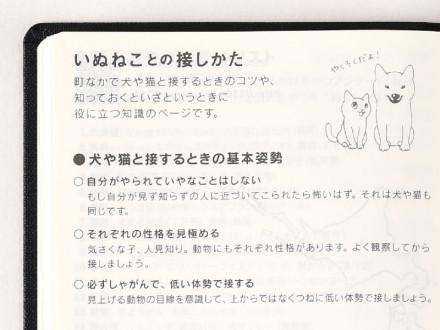 いぬねことの接しかた
町なかで犬や猫と接するときのコツや、
知っておくといざというときに
役に立つ知識のページです。
やくそくだよ！
●犬や猫と接するときの基本姿勢
○自分がやられていやなことはしない
もし自分が見ず知らずの人に近づいてこられたら怖いはず。それは犬や猫も
同じです。
○それぞれの性格を見極める
気さくな子、人見知り。動物にもそれぞれ性格があります。よく観察してから
接しましょう。
○必ずしゃがんで、低い体勢で接する
見上げる動物の目線を意識して、上からではなくつねに低い体勢で接しましょう。